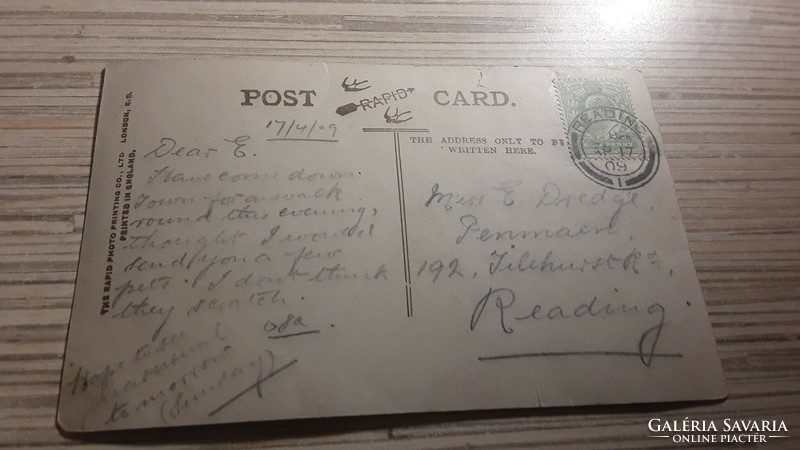 POST CARD.
RAPID
THE RAPID PHOTO PRINTING CO., LTD LONDON, E.C.
PRINTED IN ENGLAND.
17/4/09
Dear E.
Have come down
Town for a walk
round this evening,
thought I would
send you a few
pets. I don't think
they scratch.
Hope to see
as usual
tomorrow
(Sunday)
THE ADDRESS ONLY TO BE
WRITTEN HERE.
READING
AP 17
09
1
Miss E. Dredge,
Penmaen,
192, Tilehurst Rd,
Reading.
GALÉRIA SAVARIA
ONLINE PIACTÉR